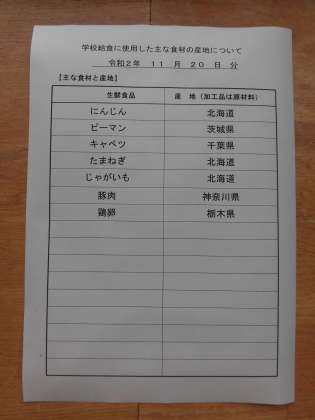 学校給食に使用した主な食材の産地について
令和2年 11月 20日 分
【主な食材と産地】
生鮮食品 産 地（加工品は原材料）
にんじん 北海道
ピーマン 茨城県
キャベツ 千葉県
たまねぎ 北海道
じゃがいも 北海道
豚肉 神奈川県
鶏卵 栃木県